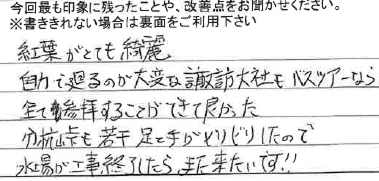 今回最も印象に残ったことや、改善点をお聞かせください。
※書ききれない場合は裏面をご利用下さい
紅葉がとても綺麗
自力で廻るのが大変な諏訪大社もバスツアーなら
全て参拝することができて良かった
分杭峠も若干足と手がピリピリしたので
水場が工事終了したら、また来たいです!!